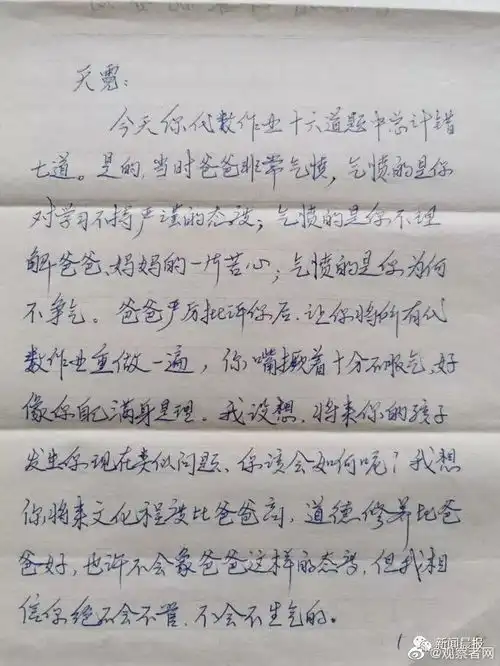 天霓：
今天你代数作业十六道题中总计错
七道。是的，当时爸爸非常气愤，气愤的是你
对学习不持严谨的态度；气愤的是你不理
解爸爸、妈妈的一片苦心；气愤的是你为何
不争气。爸爸严厉批评你后，让你将所有代
数作业重做一遍，你嘴撅着十分不服气，好
像你自己满身是理。我设想，将来你的孩子
发生你现在类似问题，你该会如何呢？我想
你将来文化程度比爸爸高，道德修养比爸
爸好，也许不会象爸爸这样的态度，但我相
信你绝不会不管，不会不生气的。
1
新闻晨报
@观察者网